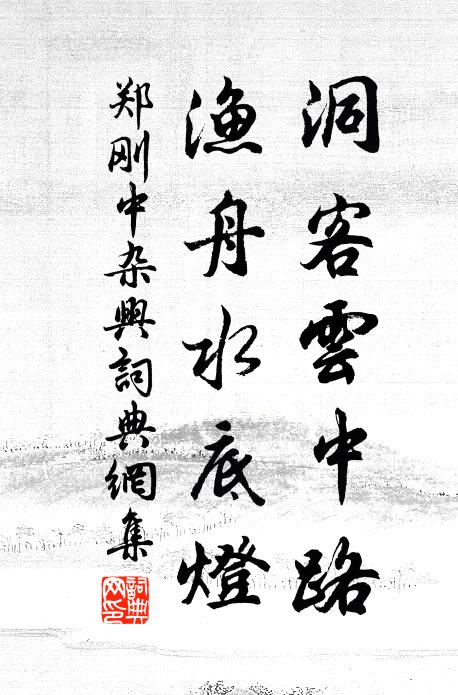 洞客雲中路
漁舟水底燈
郑刚中杂興詞典網集
詞典网印